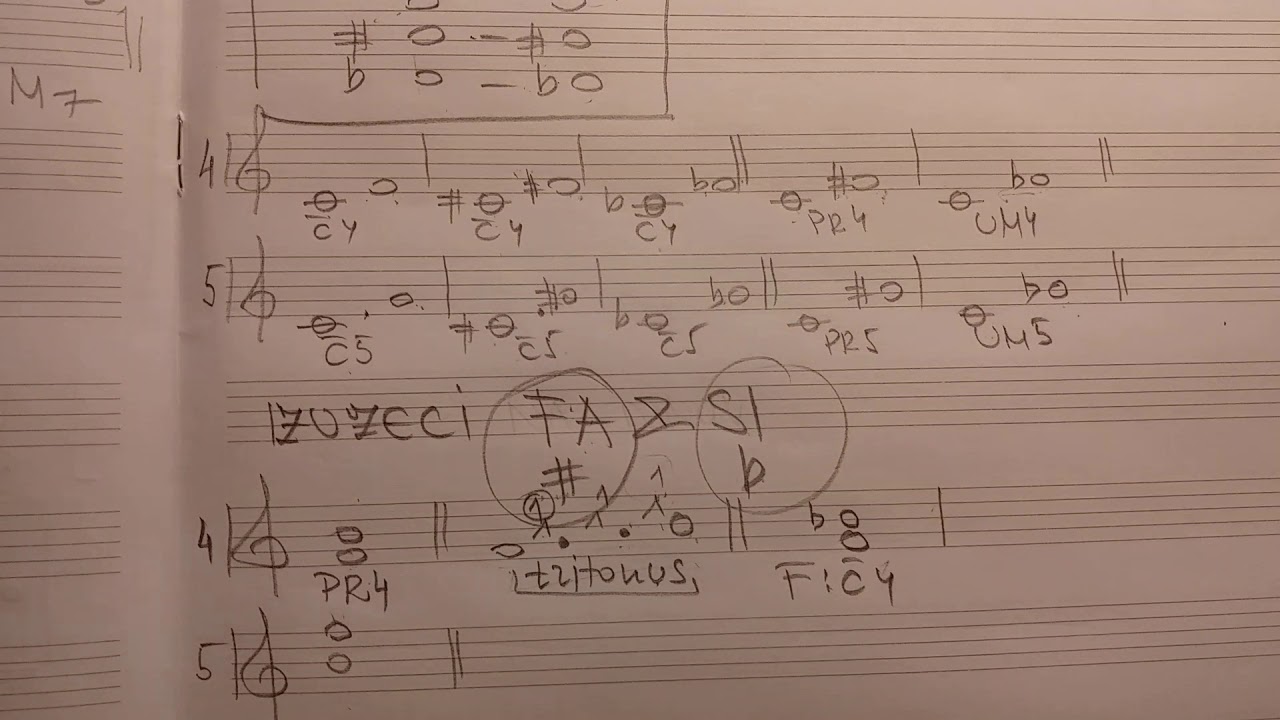 # - #
b - b
M7
4
Č4 Č4 Č4 PR4 UM4
5
Č5 Č5 Č5 PR5 UM5
IZUZECI FA SI
# b
1 1 1 1
4 b
PR4 "tritonus" F: Č4
5